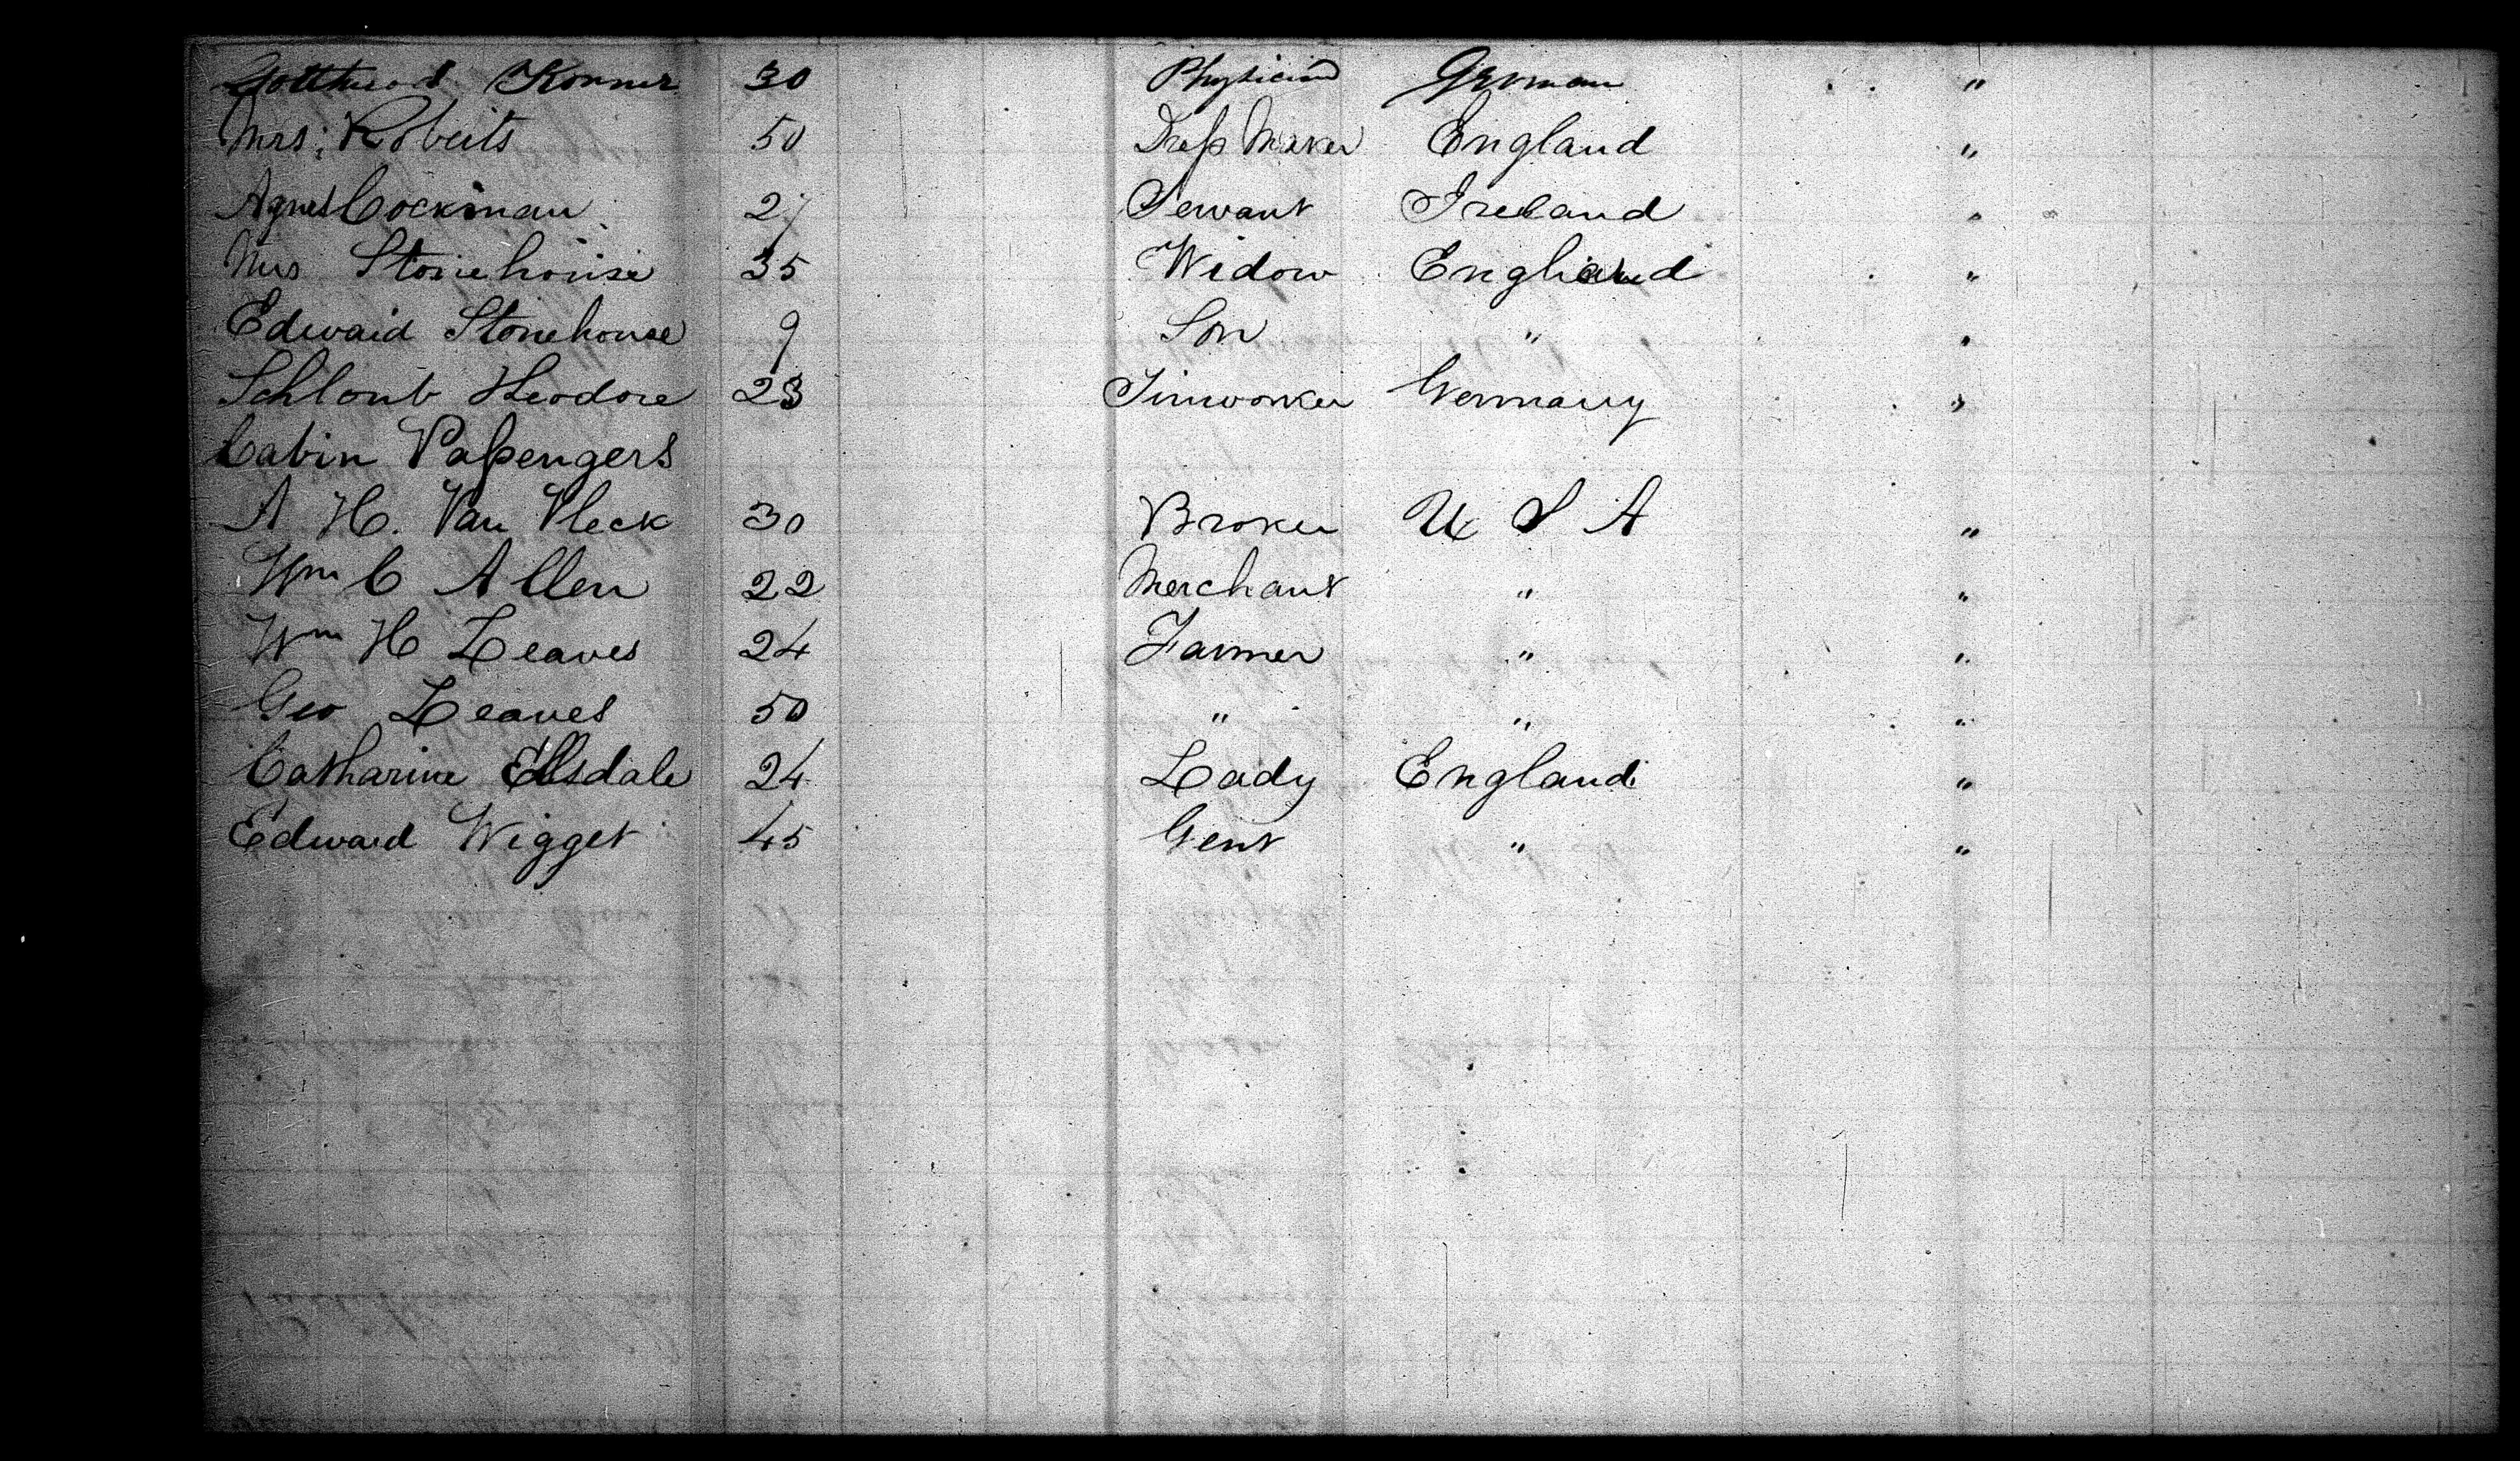 Gotthard Korner 30 Physician German "
Mrs: Roberts 50 Dress Maker England "
Agnes Cockman 27 Servant Ireland "
Mrs Stonehouse 35 Widow England "
Edward Stonehouse 9 Son " "
Schlout Theodore 23 Tinworker Germany "
Cabin Passengers
A H. Van Vleck 30 Broker U S A "
Wm C Allen 22 Merchant " "
Wm H Leaves 24 Farmer " "
Geo Leaves 50 " " "
Catharine Ellsdale 24 Lady England "
Edward Wigget 45 Gent " "